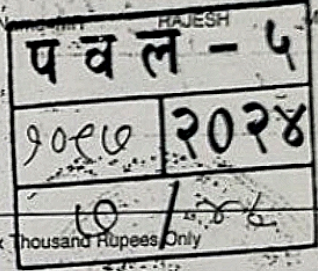 RAJESH
पवल - ५
१०९७ २०२४
७ / ४८
x Thousand Rupees Only